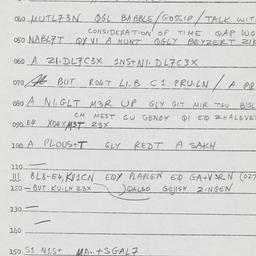 040 MUTL73N QGL BABBLE/GOSSIP/TALK WIT
CONSIDERATION OF TIME QAP WO
050 NABL7T QY VI A MUNT QGLY BEYZERT ZIK
060 A ZI.DL7C3X INSTNI.DL7C3X
070 BUT ROGT LI.B C1 PRU.LN / A PQ
080 A NI.GLT M3R UP GLY GIT MIR TSU BISL
CM MEST CU GENOY QI EQ ZHALEVE
090 E4 Z3X
100 A PLOUS+T GLY REDT A SAKH
110
111 BL8-E4/ EQY PLAPLEN EQ GA+V3RN (027
120 -BUT KU.LN Z3X QALSO GOJISH Z.NGEN
130
140
150 S1 N1S+